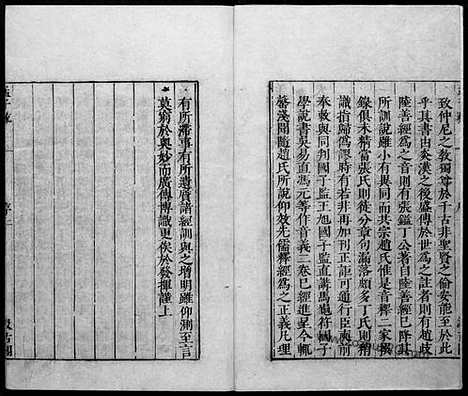 致仲尼之敎獨尊於千古非聖賢之倫安能至於此
乎其書由炎漢之後盛傳於世爲之註者則有趙歧
陸善經爲之音則有張鎰丁公著自陸善經已降其
所訓說雖小有異同而共宗趙氏惟是音釋二家撰
錄俱未精當張氏則徒分章句漏落頗多丁氏則稍
識指歸僞謬時有若非再加刊正詎可通行臣奭前
奉敕與同判國子監王旭國子監直講馬龜符國子
學說書吳易直馮元等作音義二卷已經進呈今輒
罄淺聞隨趙氏所說仰效先儒釋經爲之正義凡理
有所滯事有所遺質諸經訓與之增明雖仰測至言
莫窮於奥妙而廣傳博識更俟於發揮謹上